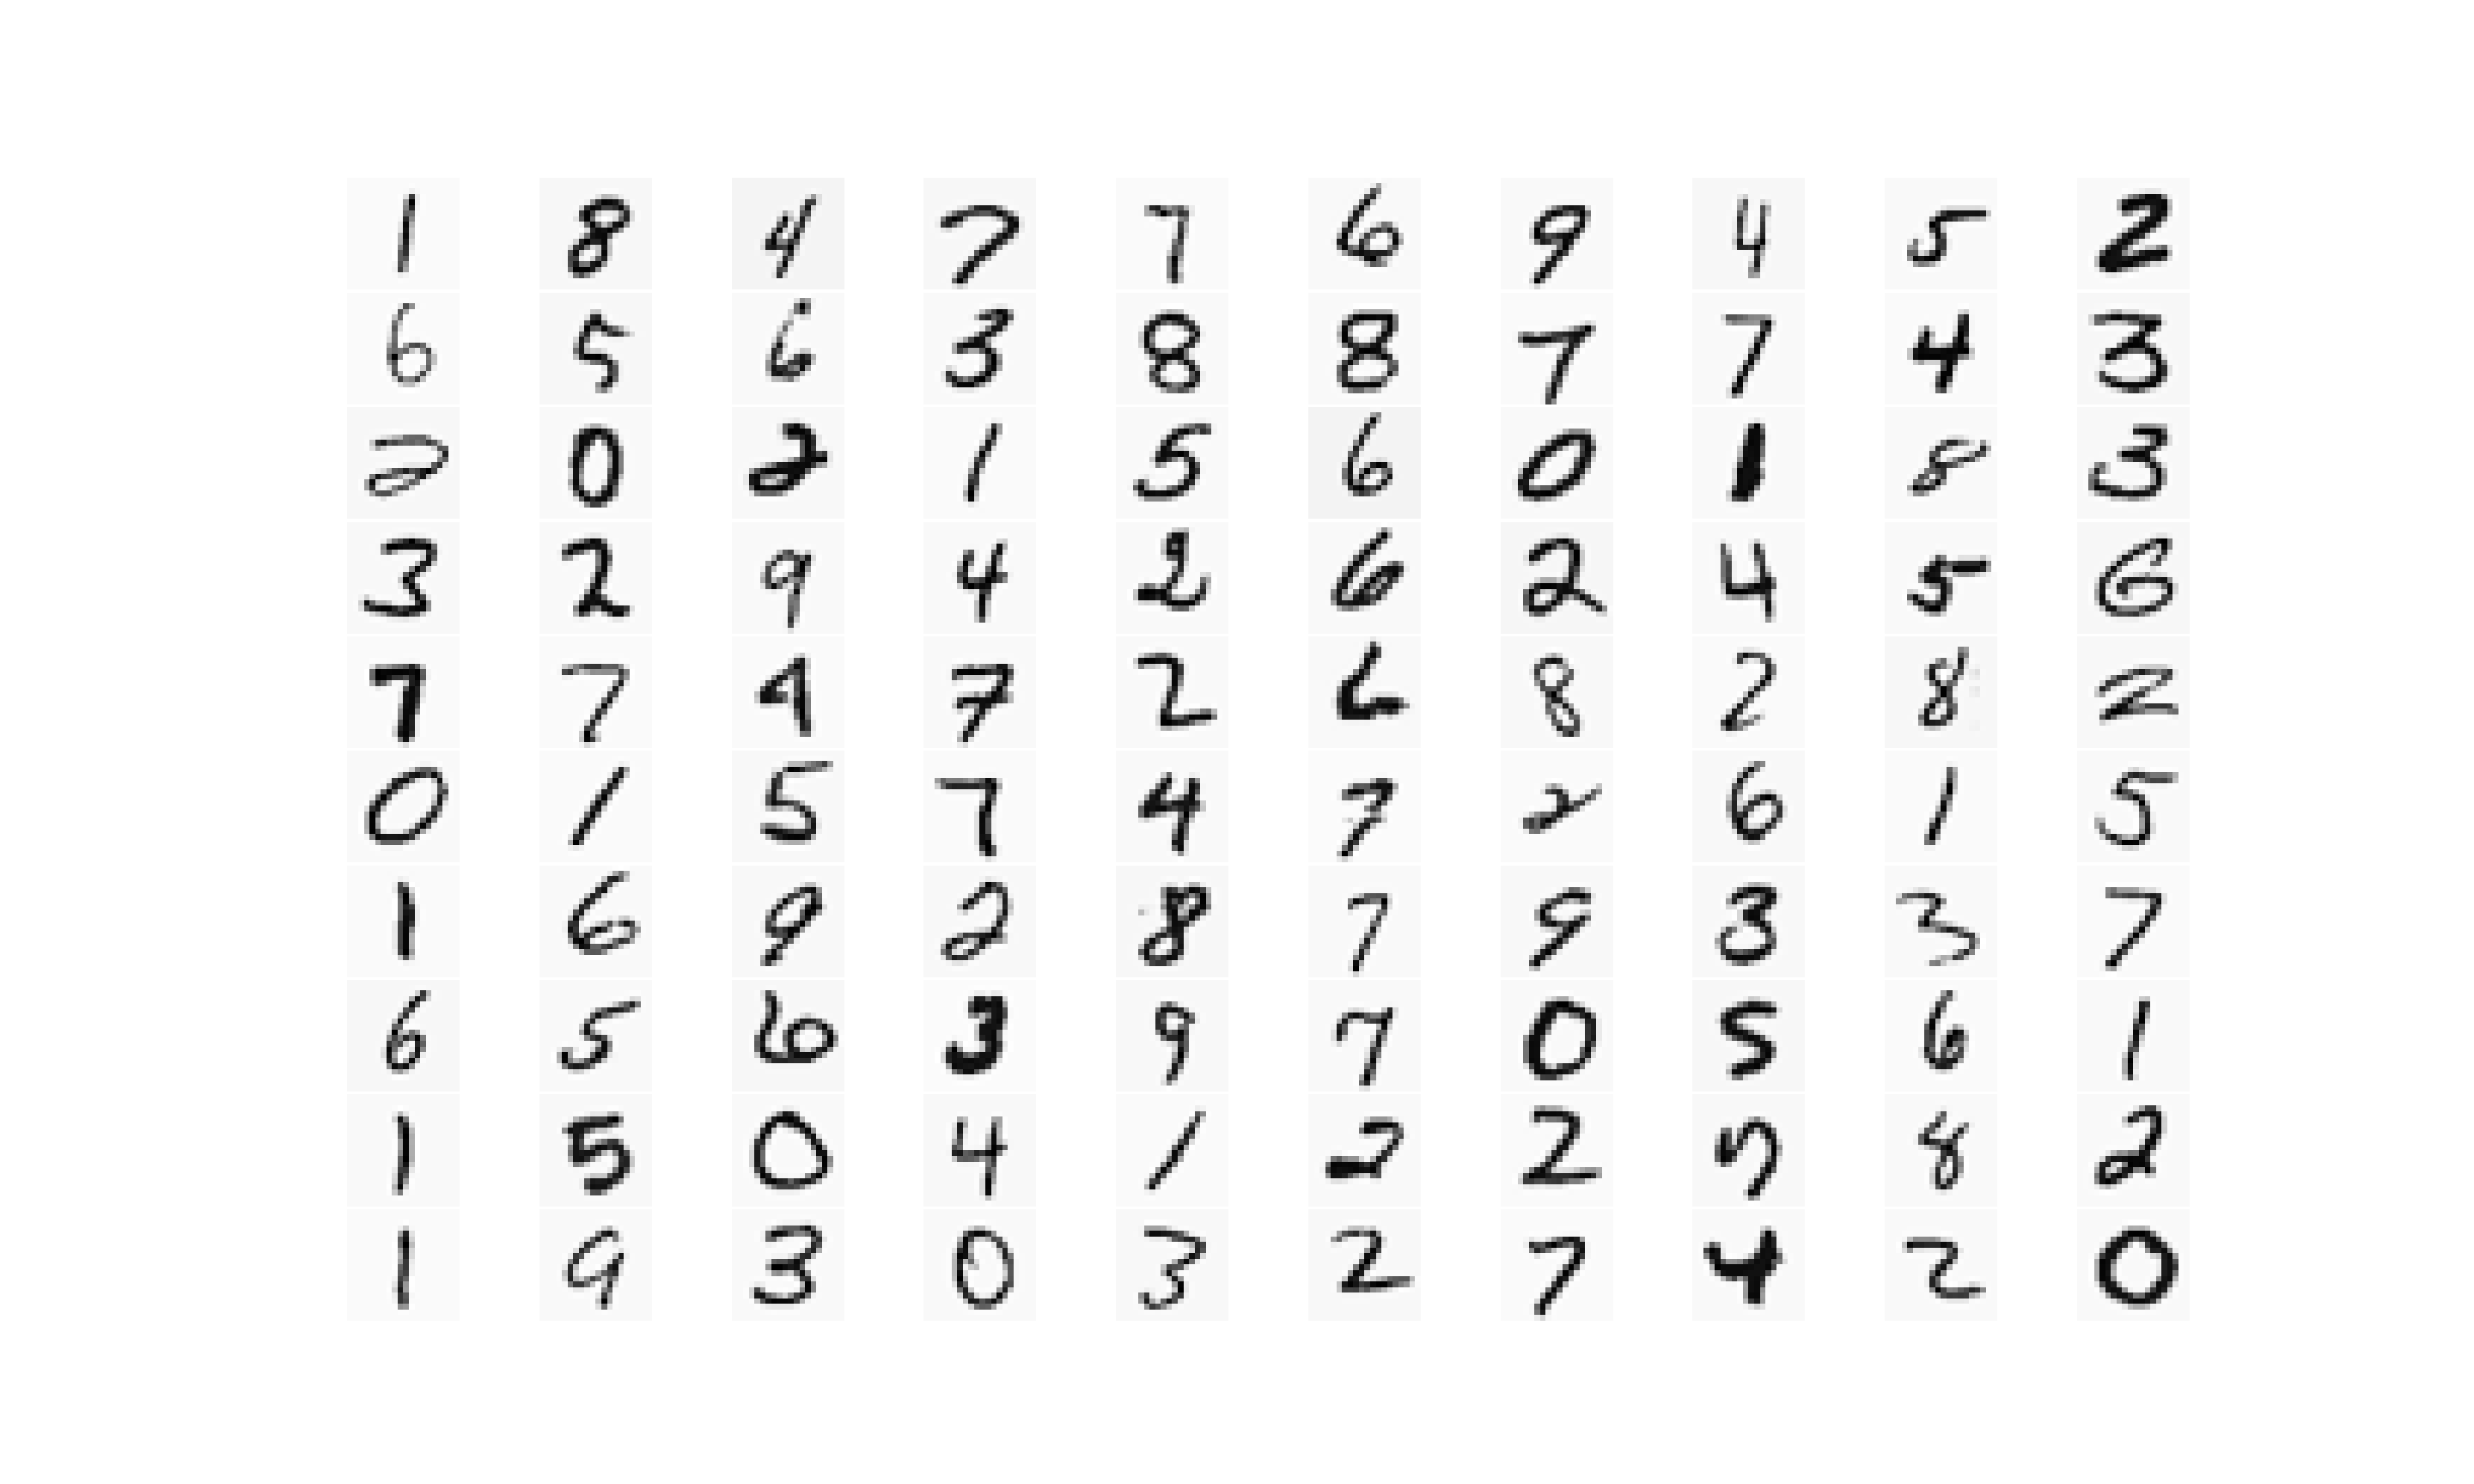 1 8 4 7 7 6 9 4 5 2
6 5 6 3 8 8 7 7 4 3
2 0 2 1 5 6 0 1 8 3
3 2 9 4 2 6 2 4 5 6
7 7 4 7 2 6 8 2 8 2
0 1 5 7 4 7 2 6 1 5
1 6 9 2 8 7 9 3 3 7
6 5 6 3 9 7 0 5 6 1
1 5 0 4 1 2 2 7 8 2
1 9 3 0 3 2 7 4 2 0